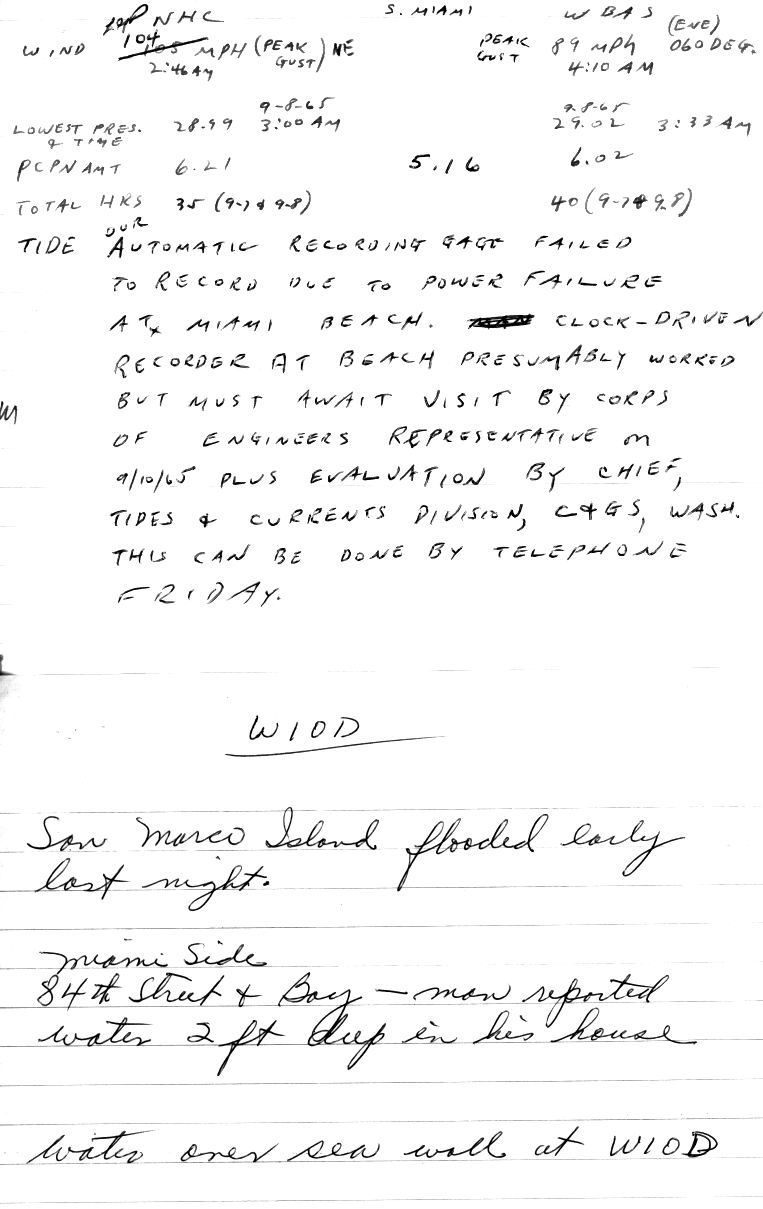 NHC S. MIAMI WBAS
104 (ENE)
WIND 105 MPH (PEAK GUST) NE PEAK GUST 89 MPH 060 DEG.
2:46 AM 4:10 AM
9-8-65 9-8-65
LOWEST PRES. & TIME 28.99 3:00 AM 29.02 3:33 AM
PCPN AMT 6.21 5.16 6.02
TOTAL HRS DUR 35 (9-7 & 9-8) 40 (9-7 & 9.8)
TIDE AUTOMATIC RECORDING GAGE FAILED
TO RECORD DUE TO POWER FAILURE
AT MIAMI BEACH. CLOCK-DRIVEN
RECORDER AT BEACH PRESUMABLY WORKED
BUT MUST AWAIT VISIT BY CORPS
OF ENGINEERS REPRESENTATIVE on
9/10/65 PLUS EVALUATION BY CHIEF,
TIDES & CURRENTS DIVISION, C&GS, WASH.
THIS CAN BE DONE BY TELEPHONE
FRIDAY.
WIOD
San Marco Island flooded early
last night.
Miami Side
84th Street & Bay - man reported
water 2 ft deep in his house
water over sea wall at WIOD